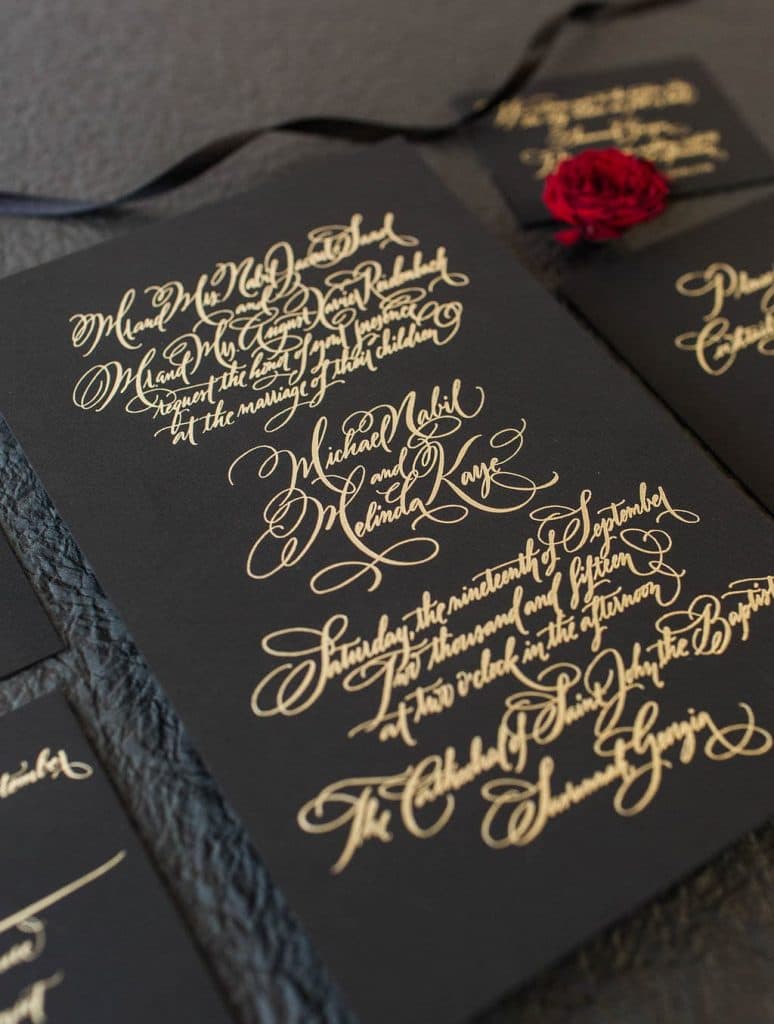 Mr. and Mrs. Nabil Saad
and
Mr. and Mrs. August Xavier Reidenbach
request the honor of your presence
at the marriage of their children
Michael Nabil
and
Melinda Kaye
Saturday, the nineteenth of September
Two thousand and fifteen
at two o'clock in the afternoon
The Cathedral of Saint John the Baptist
Savannah Georgia